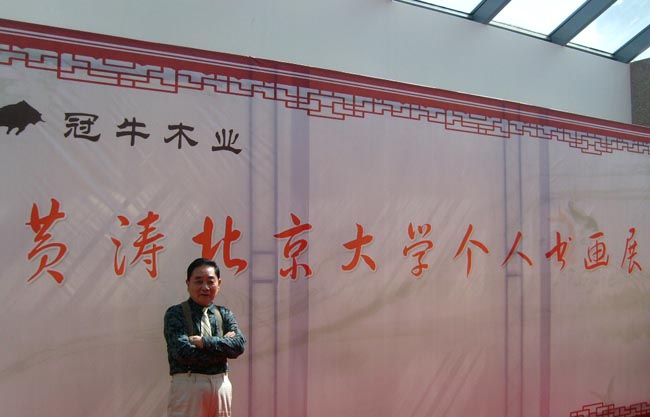 冠牛木业
黄涛北京大学个人书画展